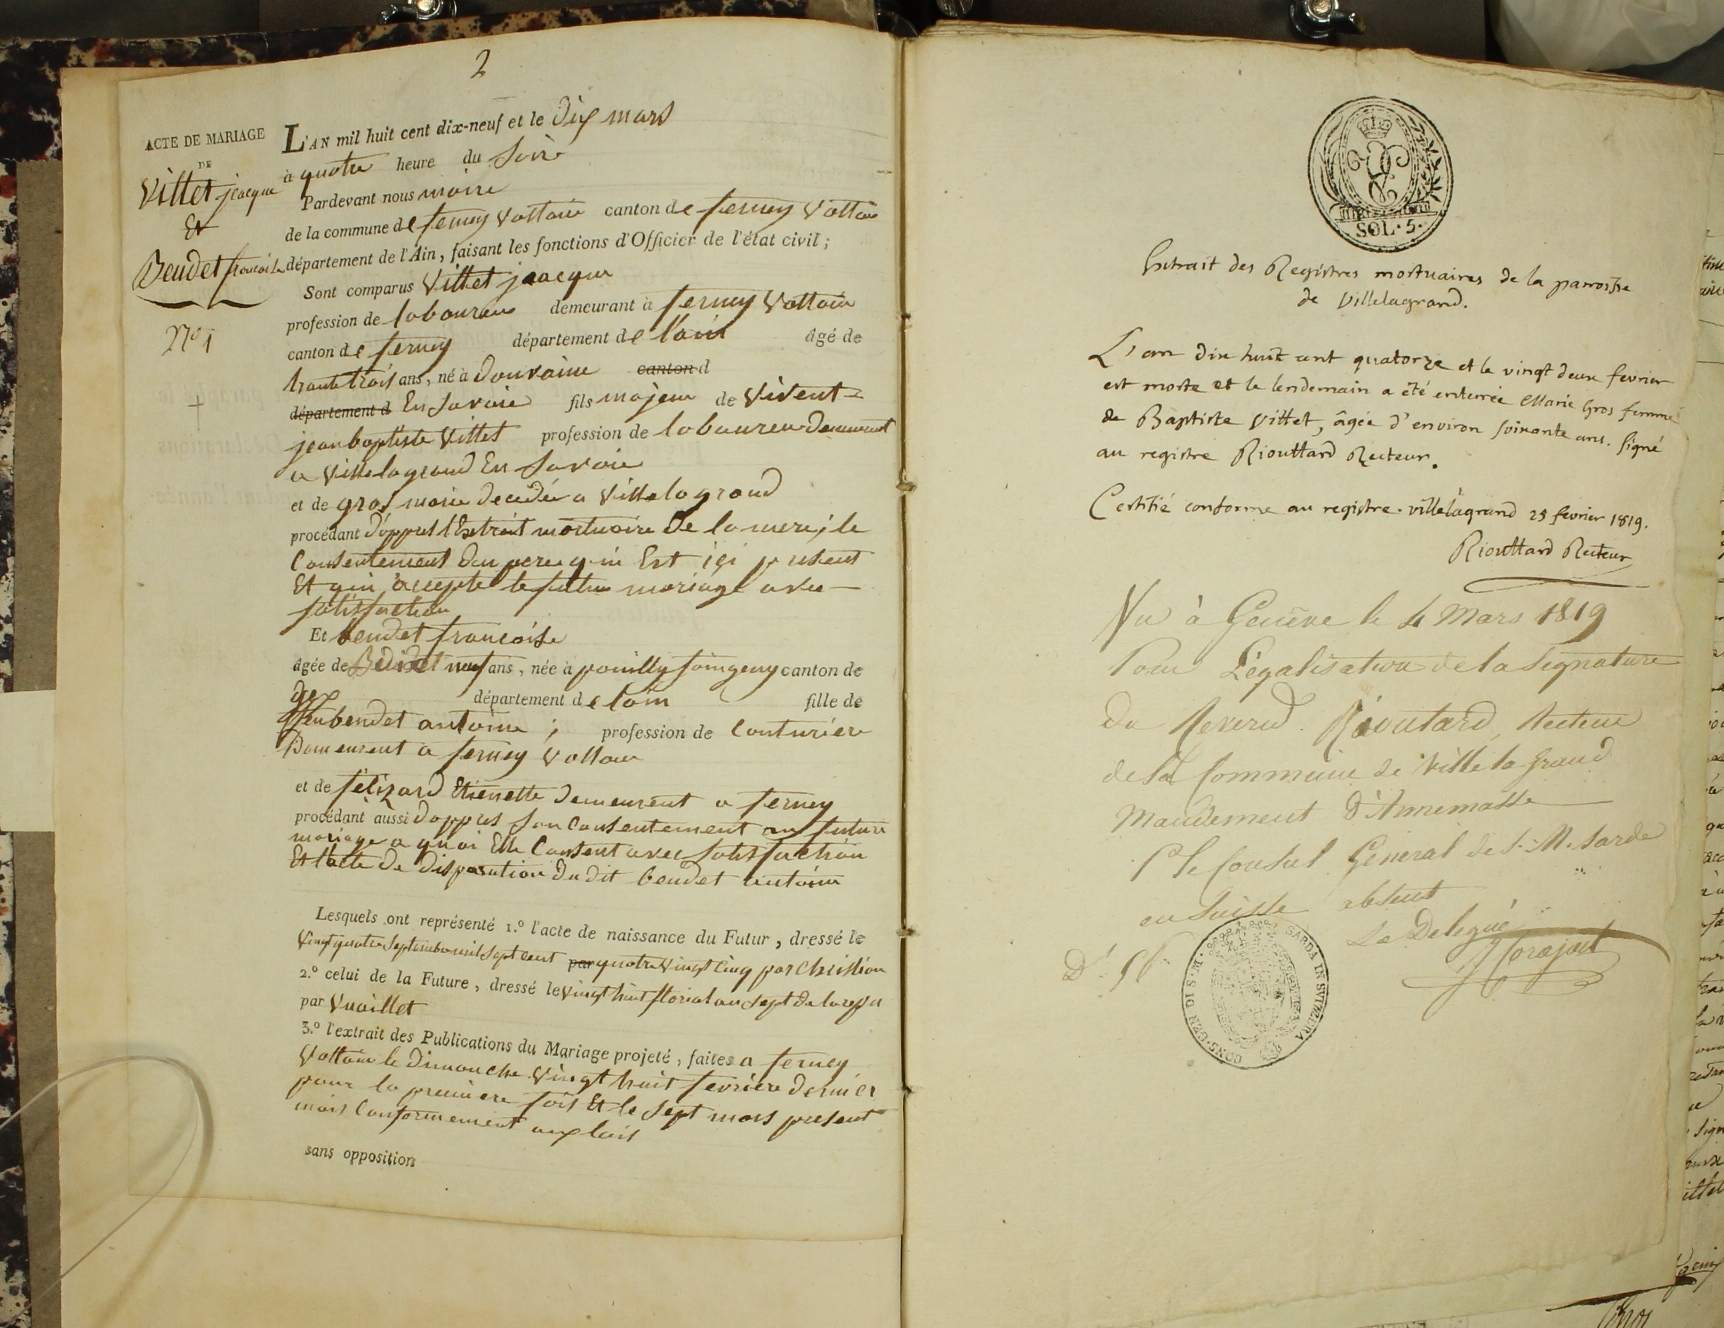 2
ACTE DE MARIAGE
DE
Vittet jacque
Et
Bendet francoise
N° 1
L'AN mil huit cent dix-neuf et le Dix mars
à quatre heure du Soire
Pardevant nous maire
de la commune de ferney Voltaire canton de ferney Voltaire
département de l'Ain, faisant les fonctions d'Officier de l'état civil ;
Sont comparus Vittet jacque
profession de laboureur demeurant à ferney Voltaire
canton de ferney département de l'ain âgé de
trante trois ans, né à Douvaine canton d
département d En Savoie fils majeur de Vivent
jean baptiste Vittet profession de laboureur Demeurent
a Ville la grand En Savoie
et de gros marie Decedée a Ville la grand
procédant D'appres l'Extrait mortuaire De la mere, le
Consentement Du pere qui Est ici present
Et qui accepte le future mariage avec
satisfaction
Et bendet francoise
âgée de ans, née à pouilly Saingeny canton de
gex département de lain fille de
feu bendet antoine ; profession de Couturiere
Demeurent a ferney Voltaire
et de felizard Etienette Demeurent a ferney
procédant aussi D'appres Son Consentement au future
mariage a quoi Elle Consent avec Satisfaction
Et l'acte De Disparution Du dit bendet antoine
Lesquels ont représenté 1.° l'acte de naissance du Futur, dressé le
Vingt quatre Septembre mil Sept cent par quatre Vingt Cinq par Christian
2.° celui de la Future, dressé le Vingt huit florial an Sept De la rep
par Vuaillet
3.° l'extrait des Publications du Mariage projeté, faites a ferney
Voltaire le Dimanche Vingt huit fevriere Dernier
pour la premiere fois Et le Sept mars present
mois Conformement aux lois
sans opposition
SOL. 5.
Extrait des Registres mortuaires de la parroisse
de Villelagrand.
L'an dix huit cent quatorze et le vingt deux fevrier
est morte et le lendemain a été enterrée Marie Gros femme
de Baptiste Vittet, âgée d'environ soixante ans. Signé
au registre Riouttard Recteur.
Certifié conforme au registre. villelagrand 25 fevrier 1819.
Riouttard Recteur
Vu à Genève le 4 Mars 1819
Pour Légalisation de la Signature
du Reverd. Rioutard, Recteur
de la Commune de Ville la Grand
Mandement d'Annemasse
Pr le Consul Général de S. M. Sarde
en Suisse absent
Le Delegué
CONS. GEN DI S. M. SARDA IN SVIZZERA